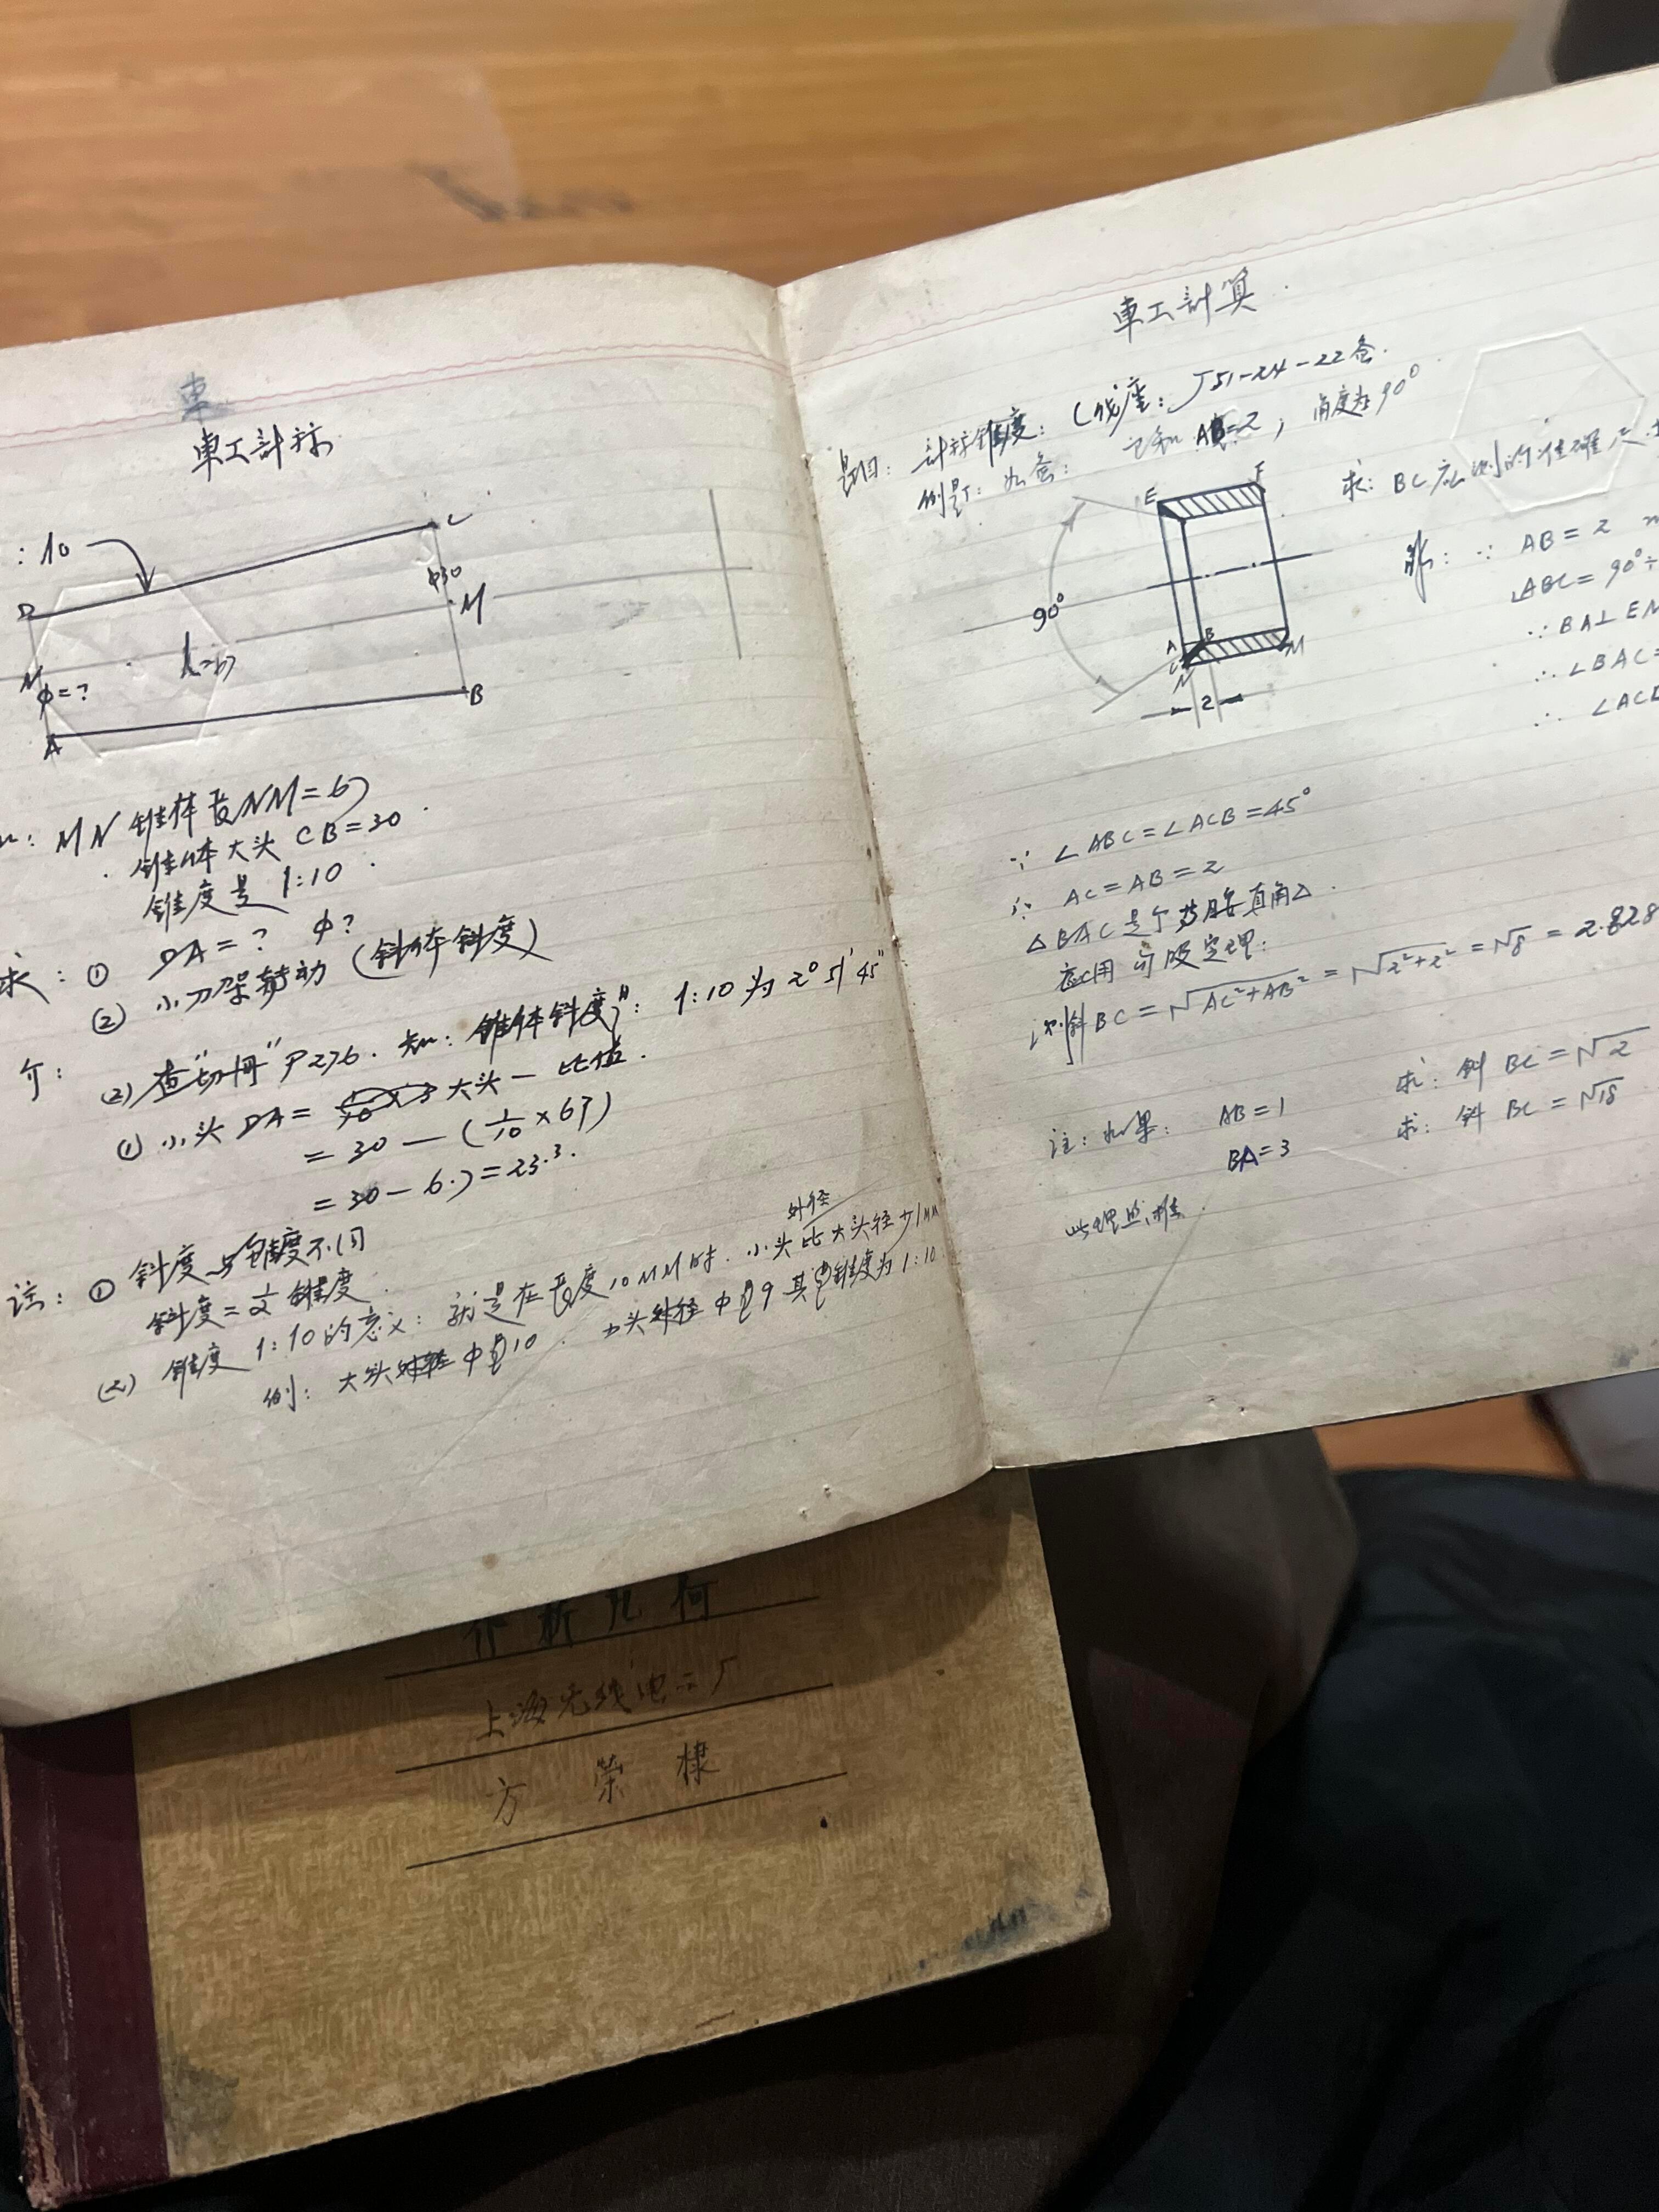 車
車工計标
:10
D
C
φ30
M
N
l=67
φ=?
A
B
MN 锥体長NM=67
锥体大头 CB=30
锥度是 1:10
求:① DA=? φ?
② 小刀架轉动(斜体斜度)
介:(2)查"切册"P276. 知:"锥体斜度": 1:10 为 2°51′45″
① 小头 DA= 大头 — 比值.
=30—(1/10×67)
=30—6.7=23.3.
注:① 斜度与锥度不同
斜度=1/2 锥度
外径
(2) 锥度 1:10的意义:就是在長度10MM时.小头比大头径少1MM
例:大头外径 10. 小头外径 9 其锥度为1:10
車工計算.
題目:計标锥度:(线座:J51-24-22
例題:如 已知 AB=2, 角度为90°
求:BC应 的准確尺寸
E
F
90°
A
B
C
N
M
2
解:∵ AB=2
∠ABC=90°÷
∵BA⊥EN
∴∠BAC=
∴ ∠ACB
∵ ∠ABC=∠ACB=45°
∴ AC=AB=2
△BAC是个等腰直角△.
应用勾股定理:
则斜BC=√AC²+AB²=√2²+2²=√8=2.828
注:如果: AB=1 求:斜 BC=√2
BA=3 求:斜 BC=√18
此理照推.
介析几何
上海无线电二厂
方 荣 棣